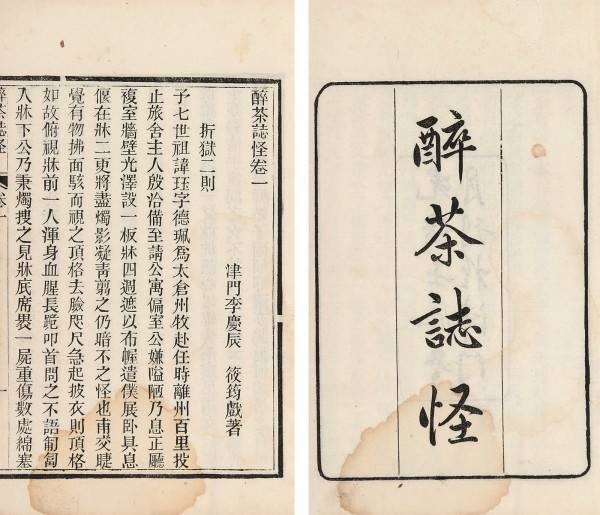 醉茶誌怪
醉茶誌怪卷一
津門李慶辰　筱筠戲著
折獄二則
予七世祖諱珏字德珮爲太倉州牧赴任時離州百里投
止旅舍主人殷洽備至請公寓偏室公嫌嗌陋乃息正廳
複室牆壁光澤設一板牀四週遮以布幄遣僕展臥具息
偃在牀二更將盡燭影凝青剪之仍暗不之怪也甫交睫
覺有物拂面駭而視之頂格去臉咫尺急起披衣則頂格
如故俯視牀前一人渾身血腥長跪叩首問之不語匍匐
入牀下公乃秉燭搜之見牀底席裹一屍重傷數處綿塞
醉茶誌怪　卷一　一